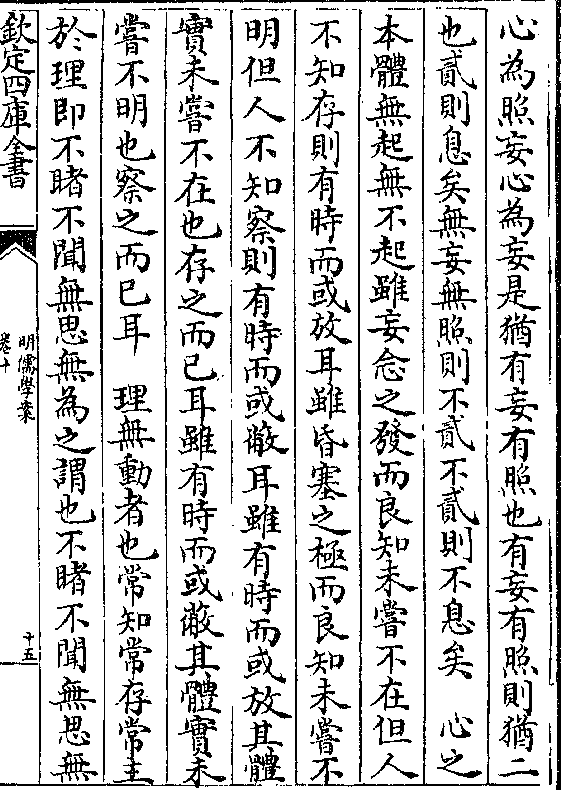 心為照妄心為妄是猶有妄有照也有妄有照則猶二
也貳則息矣無妄無照則不貳不貳則不息矣　心之
本體無起無不起雖妄念之發而良知未嘗不在但人
不知存則有時而或放耳雖昏塞之極而良知未嘗不
明但人不知察則有時而或蔽耳雖有時而或放其體
實未嘗不在也存之而已耳雖有時而或蔽其體實未
嘗不明也察之而已耳　理無動者也常知常存常主
於理即不睹不聞無思無為之謂也不睹不聞無思無
欽定四庫全書
明儒學案
卷十
十五